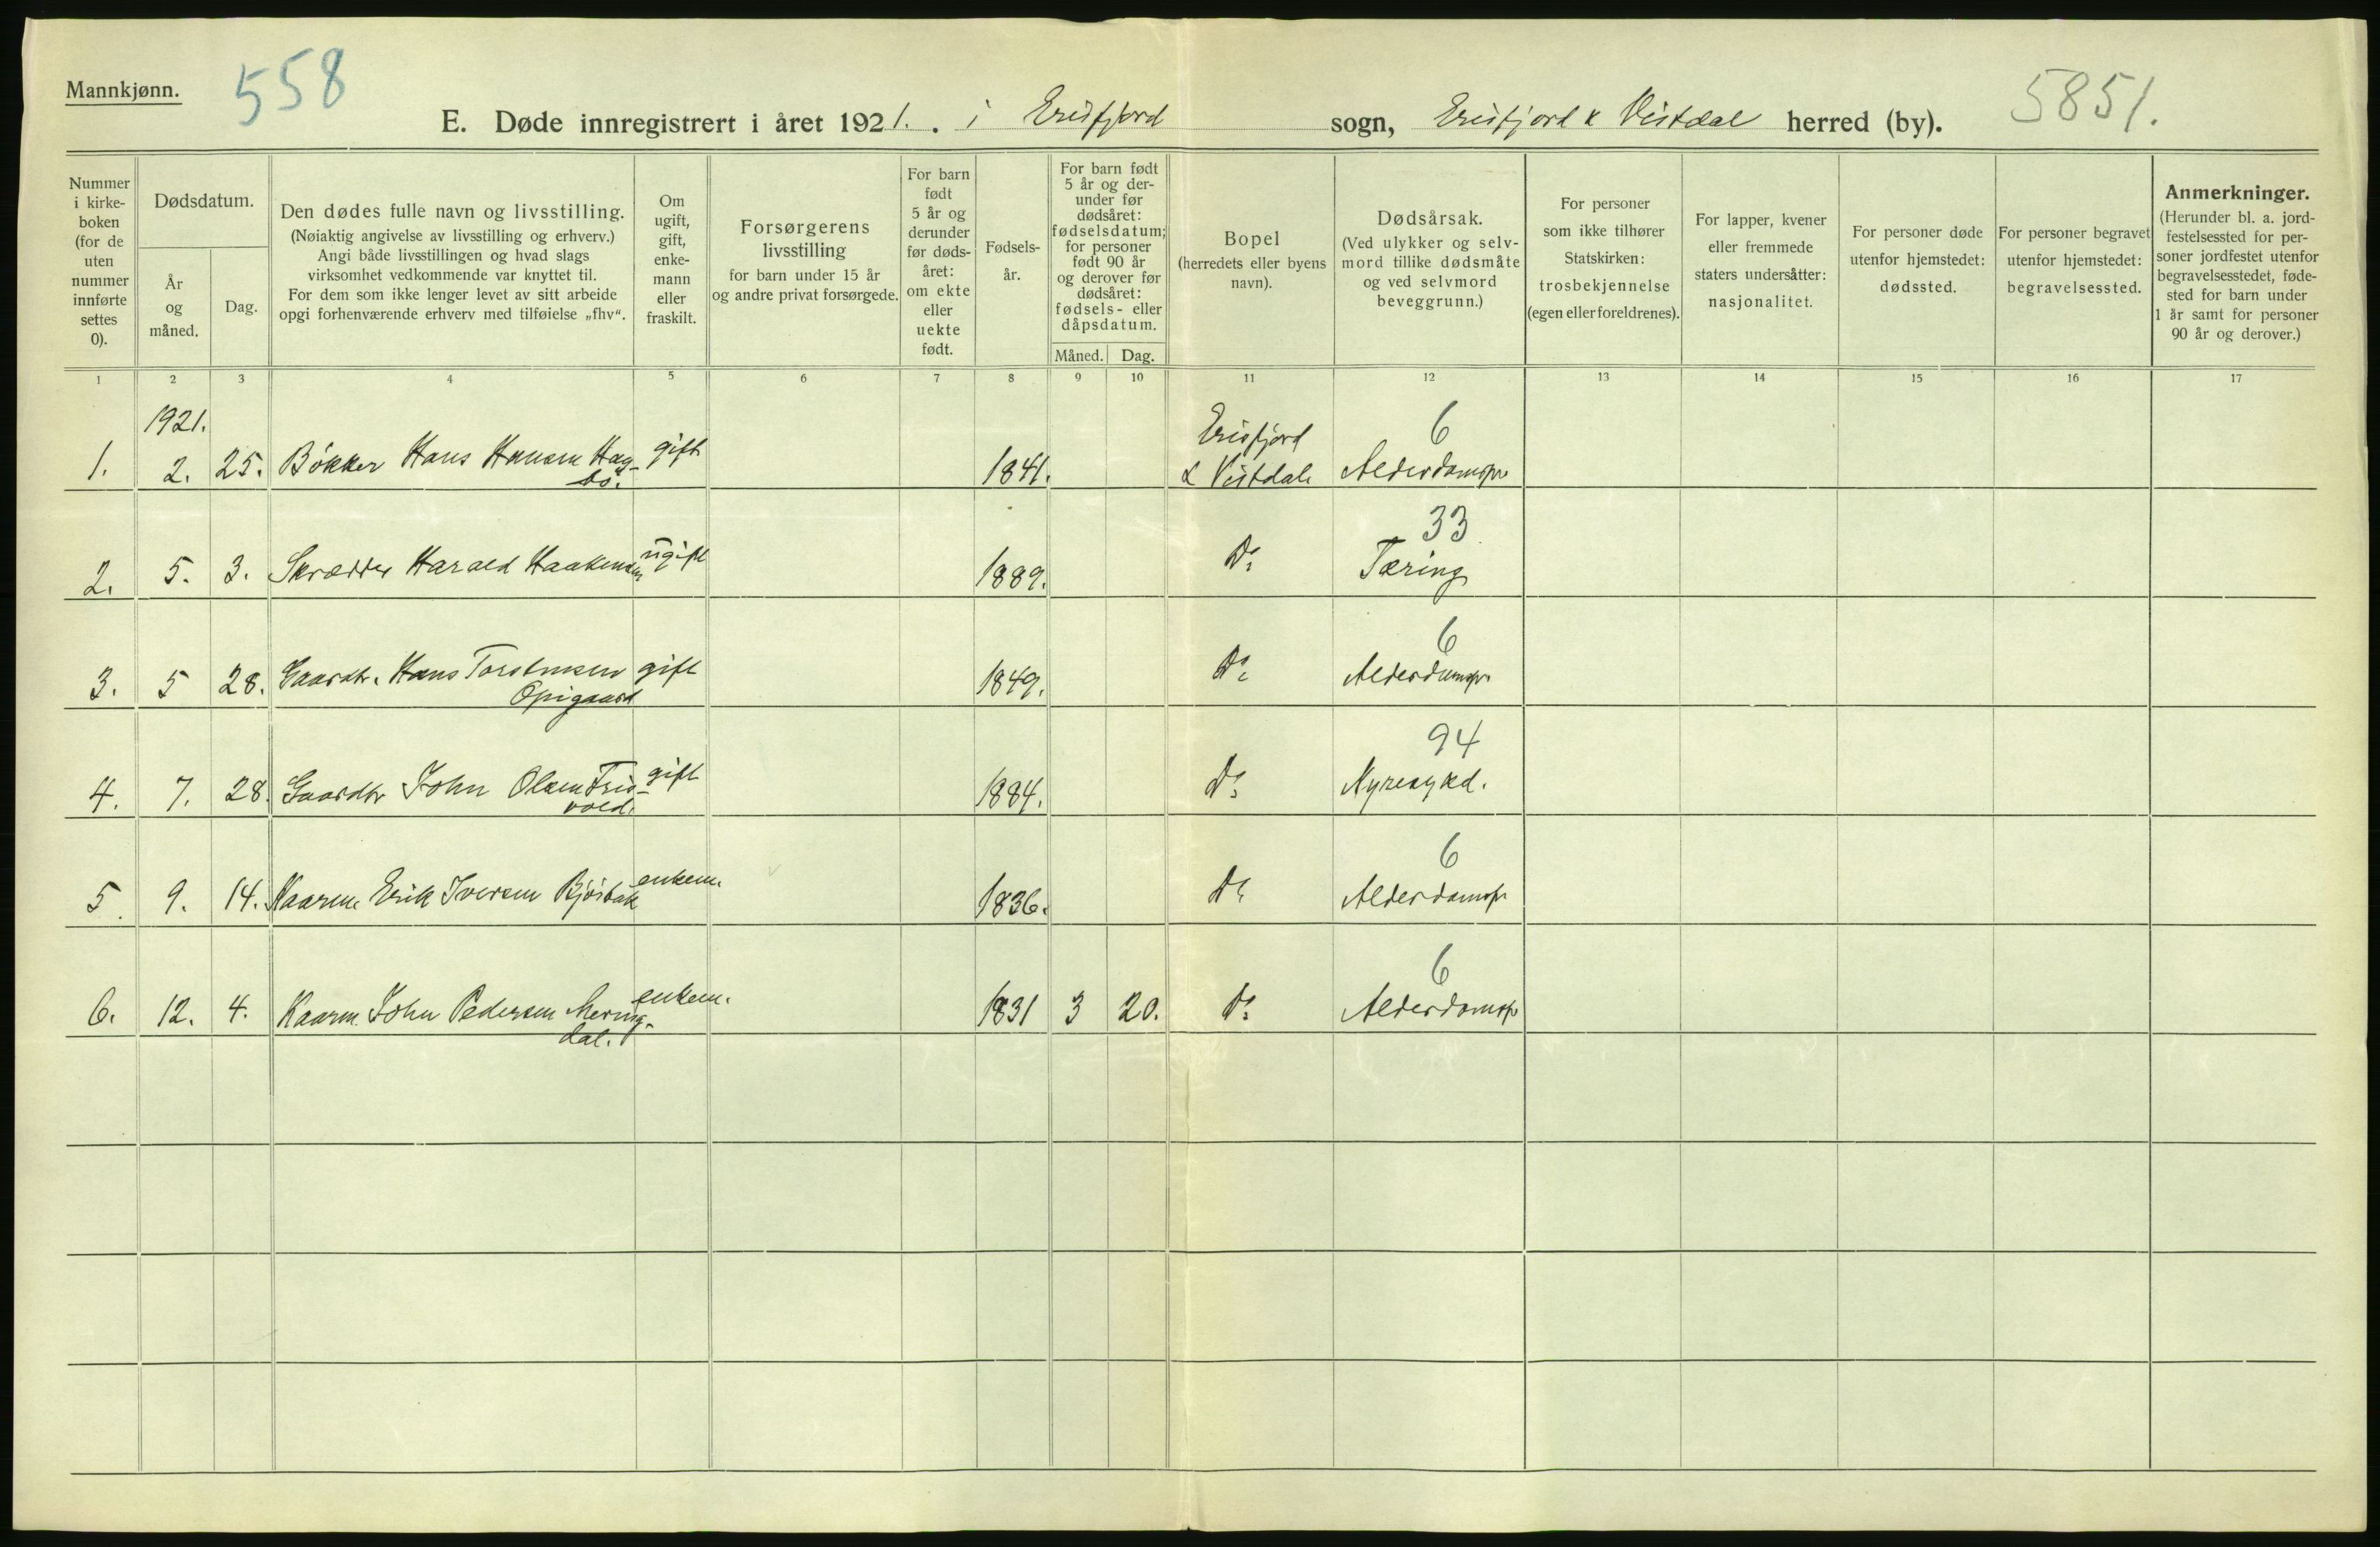 Mannkjønn.
558
E. Døde innregistrert i året 1921. i Erisfjord sogn, Erisfjord & Vistdal herred (by).
5851.
Nummer i kirke-boken (for de uten nummer innførte settes 0).
Dødsdatum.
År og måned.
Dag.
Den dødes fulle navn og livsstilling.
(Nøiaktig angivelse av livsstilling og erhverv.)
Angi både livsstillingen og hvad slags
virksomhet vedkommende var knyttet til.
For dem som ikke lenger levet av sitt arbeide
opgi forhenværende erhverv med tilføielse „fhv“.
Om ugift, gift, enke-mann eller fraskilt.
Forsørgerens livsstilling
for barn under 15 år
og andre privat forsørgede.
For barn født 5 år og derunder før døds-året: om ekte eller uekte født.
Fødsels-år.
For barn født 5 år og der-under før dødsåret: fødselsdatum; for personer født 90 år og derover før dødsåret: fødsels- eller dåpsdatum.
Måned. Dag.
Bopel
(herredets eller byens navn).
Dødsårsak.
(Ved ulykker og selv-mord tillike dødsmåte og ved selvmord beveggrunn.)
For personer som ikke tilhører Statskirken: trosbekjennelse (egen eller foreldrenes).
For lapper, kvener eller fremmede staters undersåtter: nasjonalitet.
For personer døde utenfor hjemstedet: dødssted.
For personer begravet utenfor hjemstedet: begravelsessted.
Anmerkninger.
(Herunder bl. a. jord-festelsessted for per-soner jordfestet utenfor begravelsesstedet, føde-sted for barn under 1 år samt for personer 90 år og derover.)
1 2 3 4 5 6 7 8 9 10 11 12 13 14 15 16 17
1921.
1. 2. 25. Bøkker Hans Hansen Hag-bø. gift 1841. Erisfjord & Vistdal 6 Alderdomssv
2. 5. 3. Skrædder Harald Haakensen ugift 1889. Do 33 Tæring
3. 5 28. Gaardbr. Hans Torstensen Opigaard gift 1849. Do 6 Alderdomssv.
4. 7. 28. Gaardbr John Olsen Fris-vold. gift 1884. Do 94 Nyresykd.
5. 9. 14. Kaarm. Erik Iversen Bjørbak enkem. 1836. Do 6 Alderdomssv
6. 12. 4. Kaarm. John Pedersen Mering-dal. enkem. 1831 3 20. Do 6 Alderdomssv